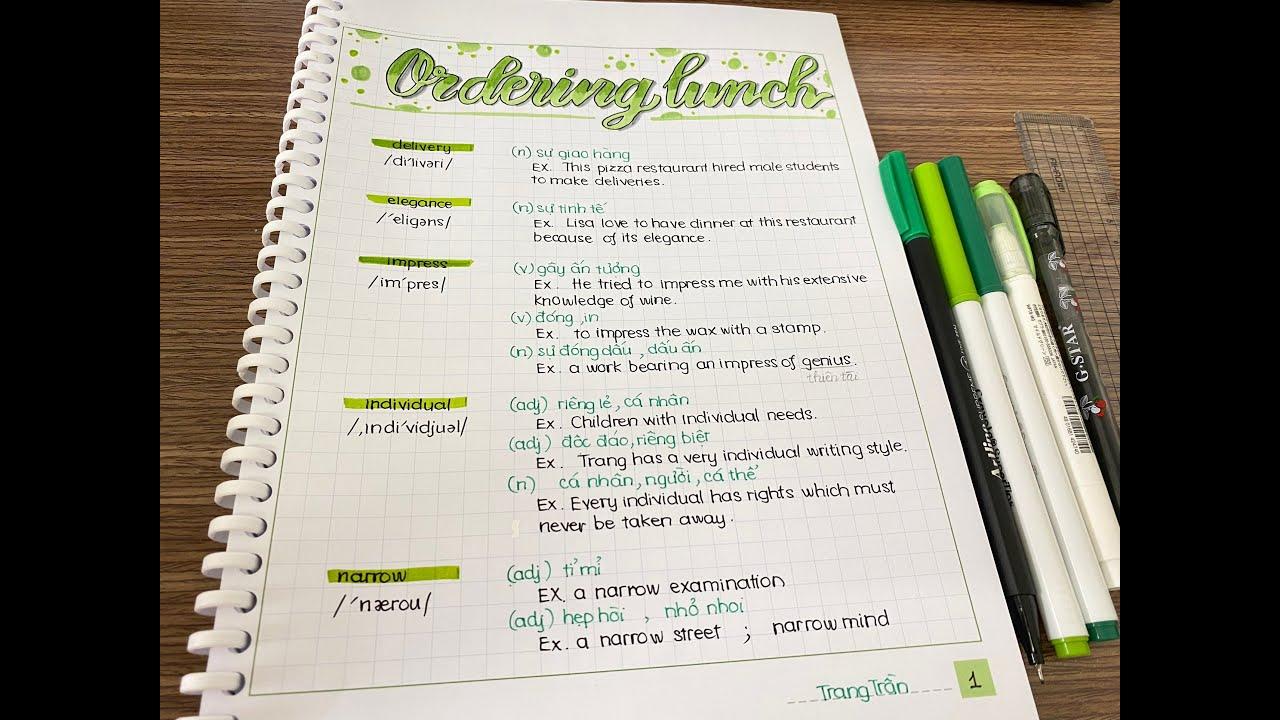 Ordering lunch
delivery
/di'livəri/
(n) sự giao hàng
Ex. This pizza restaurant hired male students
to make deliveries.
elegance
/'eligəns/
(n) sự tinh tế
Ex. Lisa love to have dinner at this restaurant
because of its elegance.
impress
/im'pres/
(v) gây ấn tượng
Ex. He tried to impress me with his extensive
knowledge of wine.
(v) đóng, in
Ex. to impress the wax with a stamp.
(n) sự đóng dấu, dấu ấn
Ex. a work bearing an impress of genius
thiên tài
individual
/,indi'vidjuəl/
(adj) riêng lẻ, cá nhân
Ex. Children with individual needs.
(adj) độc đáo, riêng biệt
Ex. Trang has a very individual writing style.
(n) cá nhân, người, cá thể
Ex. Every individual has rights which must
never be taken away.
narrow
/'nærou/
(adj) tỉ mỉ
EX. a narrow examination
(adj) hẹp hòi, nhỏ nhoi
Ex. a narrow street ; narrow mind
Trang Trần
1
G-STAR
Artline